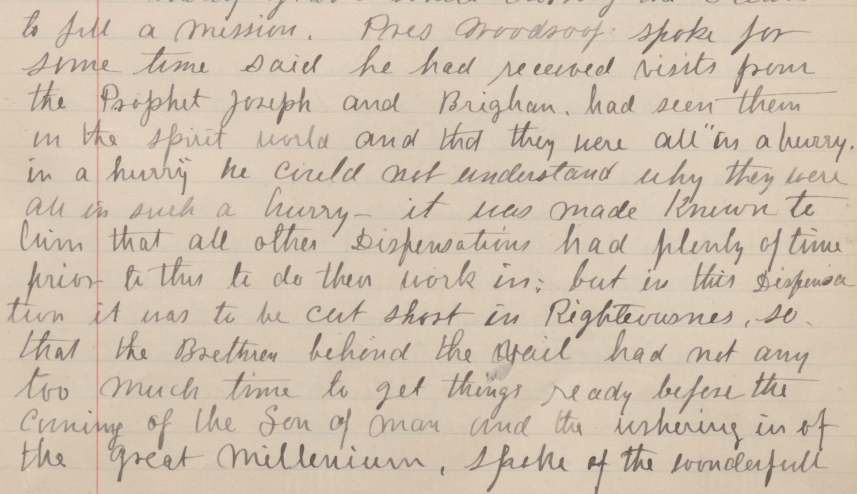 to fill a mission. Pres Woodroof spoke for
some time said he had received visits from
the Prophet Joseph and Brighan. had seen them
in the spirit world and that they were all "in a hurry.
in a hurry" he could not understand why they were
all in such a hurry - it was made known to
him that all other Dispensations had plenty of time
prior to this to do their work in; but in this Dispensa
tion it was to be cut short in Righteousnes, so
that the Brethren behind the vail had not any
too much time to get things ready before the
Coming of the Son of man and the ushering in of
the great Millenium, Spoke of the wonderfull